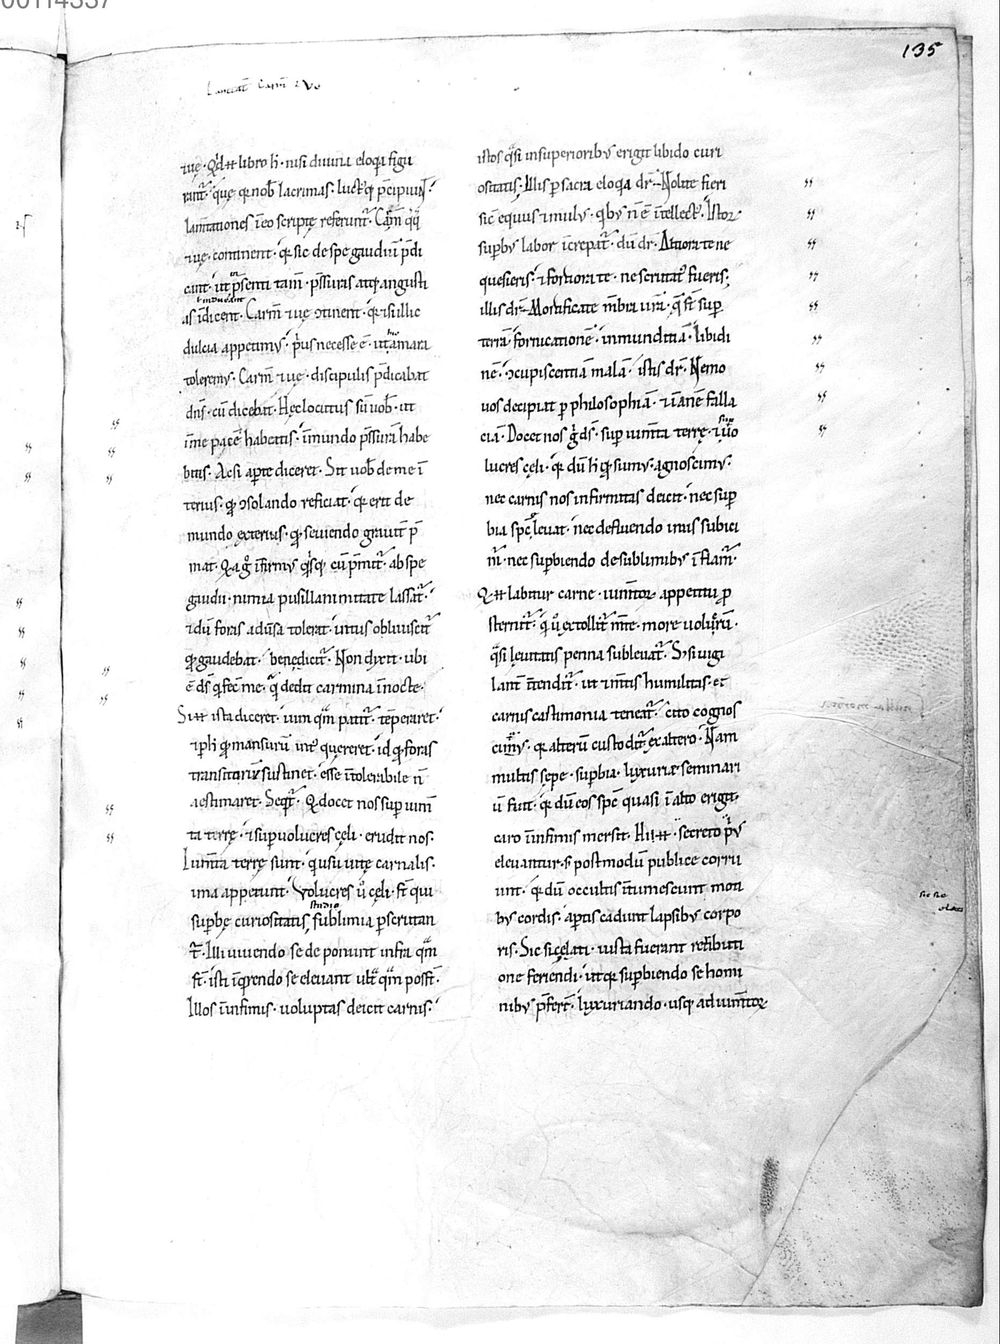 00114337
135
Lamtat̄ Carm̄ ⁊ Ve
⁊ uę. Qd̄ ⁊t libro h̄. nisi diuini eloqii figu
rant̄. que quę nob̄ lacrimas. luctusq; p̄cipiunt.
lam̄tationes in eo scriptę referunt̄. Carm̄ q̄q;
⁊ uę. continent. q̄ sic de spe gaudiū p̄di
cant. ut in p̄senti tam̄. p̄ssuras atq; angusti
as īdicent. Carm̄ ⁊ uę ↄtinent. q̄ ⁊si illic
dulcia appetimꝰ. p̄us necesse ē. ut hic amara
toleremꝰ. Carm̄ ⁊ uę. discipulis p̄dicabat
dn̄s. cū dicebat. Hęc locutus sū uob̄. ut
ī me pacē habeatis. ī mundo p̄ssurā habe
bitis. Ac si apte diceret. Sit uob̄ de me ī
terius. qd̄ ↄsolando reficiat. q̄ erit de
mundo exterius. qd̄ seuiendo grauit̄ p̄
mat. Q̄a ḡ īfirmꝰ q̄sq; cū p̄mit̄. ab spe
gaudii. nimia pusillanimitate lassat̄.
⁊ dū foras aduꝰsa tolerat. intus obliuiscit̄
qd̄ gaudebat. benę dicit̄. Non dixit. ubi
ē ds̄ q̄ fec̄ me. q̄ dedit carmina ī nocte.
Si ⁊t ista diceret. iam qm̄ patit̄. tēperaret.
⁊ p̄ h̄ qd̄ mansurū int̄ quereret. id qd̄ foras
transitoriū sustinet. esse ītolerabile n̄
aestimaret. Seqt̄. Q̄ docet nos sup ium̄
ta terrę. ⁊ sup uolucres cęli. erudit nos.
Ium̄ta terrę sunt. q̄ usu uitę carnalis.
ima appetunt. Volucres ū cęli. st̄ qui
supbę curiositatis studio, sublimia pscrutan
t̄. Illi uiuendo se deponunt infra qm̄
st̄. isti īqrendo se eleuant ult̄ qm̄ poss̄t.
Illos ī infimis. uoluptas deicit carnis.
istos q̄si in superioribꝰ erigit libido curi
ositatis. Illis p sacra eloqa dr̄. Nolite fieri
sic̄ equus ⁊ mulꝰ. qbꝰ n̄ ē ītellectꝰ. Istoꝝ
supbꝰ labor īcrepat̄. dū dr̄. Altiora te ne
quesieris. ⁊ fortiora te. ne scrutatꝰ fueris.
illis dr̄. Mortificate m̄bra ur̄a. q̄ st̄ sup
terrā. fornicationē. inmunditiā. libidi
nē. ↄcupiscentiā malā. istis dr̄. Nemo
uos decipiat p philosophiā. ⁊ īanē falla
ciā. Docet nos ḡ ds̄. sup ium̄ta terrę. ⁊ sup uo
lucres cęli. q̄ dū h̄ qd̄ sumꝰ. agnoscimꝰ.
nec carnis nos infirmitas deicit. nec sup
bia sp̄c̄ leuat. nec defluendo imis subici
m̄. nec supbiendo de sublimibꝰ īflam̄.
Q̄ ⁊t labitur carne. ium̄toꝝ appetitu p
sternit̄. q̄ ū extollit̄ m̄te. more uolucrū.
q̄si leuitatis penna subleuat̄. S; si uigi
lant̄ ītendit̄. ut ⁊ m̄tis humilitas. et
carnis castimonia teneat̄. cito cognos
cimꝰ. q̄ alterū custodit̄ ex altero. Nam
multis sepe. supbia. luxurię seminari
ū fuit. q̄ dū eos sp̄c quasi ī alto erigit.
caro ī infimis mersit. Hi ⁊t. secreto p̄ꝰ
eleuantur. s; postmodū publice corru
unt. q̄ dū occultis ītumescunt moti
bꝰ cordis. aptis cadunt lapsibꝰ corpo
ris. Sic si cęlati. iusta fuerant ret̄buti
one feriendi. ut q̄ supbiendo se homi
nibꝰ p̄fert̄. luxuriando. usq; ad ium̄toꝝ